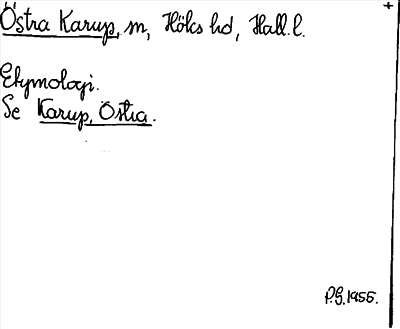 Östra Karup, sn, Höks hd, Hall. l.
Etymologi.
Se Karup, Östra.
P.G. 1955.